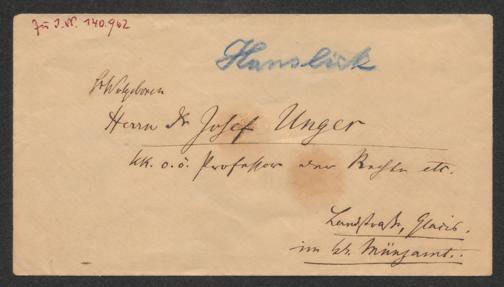 Zu I.N. 140.962
Hanslick
Sr Wolgeboren
Herrn Dr Josef Unger
kk. o. ö. Professor der Rechte etc.
Landstraße, Glacis.
im kk. Münzamt.